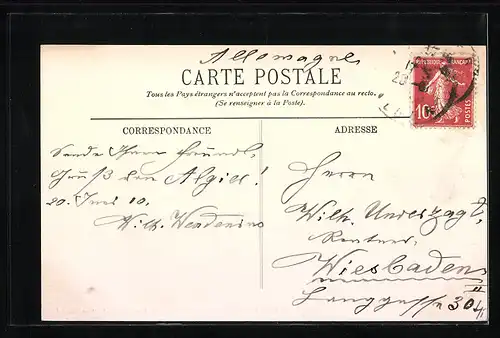 Allemagne
CARTE POSTALE
Tous les Pays étrangers n'acceptent pas la Correspondance au recto.
(Se renseigner à la Poste).
CORRESPONDANCE
Sende Ihnen freundl.
Gruß von Algier!
20. Juni 10.
Wilh.
ADRESSE
Herrn
Wilh.
Rentner,
Wiesbaden
Langgasse 30 II
10c
POSTES